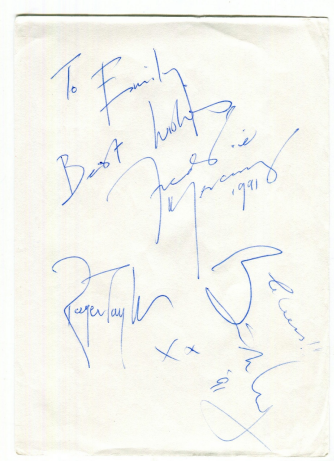 To Emily,
Best Wishes
Freddie
Mercury
1991
Roger Taylor
xx
Cheers!!
Brian May
'91